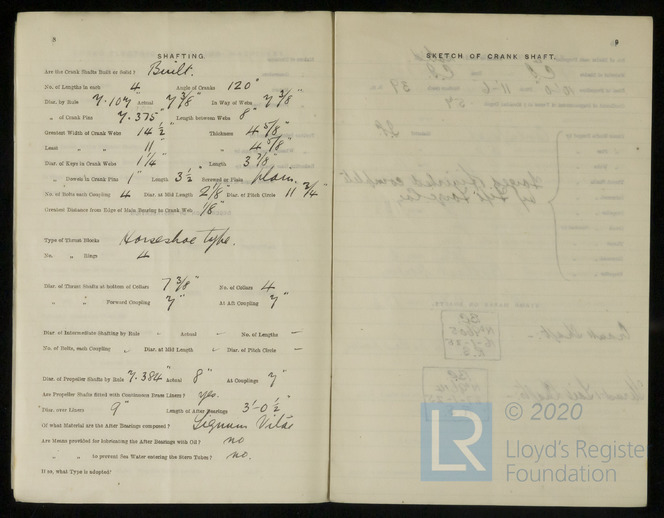 8
SHAFTING.
Are the Crank Shafts Built or Solid? Built.
No. of Lengths in each 4 Angle of Cranks 120°
Diar. by Rule 7.107" Actual 7 3/8" In Way of Webs 7 3/8"
„ of Crank Pins 7.375" Length between Webs 8"
Greatest Width of Crank Webs 14 1/2" Thickness 4 5/8"
Least „ „ 11" „ 4 5/8"
Diar. of Keys in Crank Webs 1 1/4" Length 3 7/8"
„ Dowels in Crank Pins 1" Length 3 1/2" Screwed or Plain plain.
No. of Bolts each Coupling 4 Diar. at Mid Length 2 1/8" Diar. of Pitch Circle 11 3/4"
Greatest Distance from Edge of Main Bearing to Crank Web 1/8"
Type of Thrust Blocks Horseshoe type.
No. „ Rings 4
Diar. of Thrust Shafts at bottom of Collars 7 3/8" No. of Collars 4
„ „ Forward Coupling 7" At Aft Coupling 7"
Diar. of Intermediate Shafting by Rule - Actual - No. of Lengths -
No. of Bolts, each Coupling - Diar. at Mid Length - Diar. of Pitch Circle -
Diar. of Propeller Shafts by Rule 7.384" Actual 8" At Couplings 7"
Are Propeller Shafts fitted with Continuous Brass Liners? yes.
Diar. over Liners 9" Length of After Bearings 3'-0 1/2"
Of what Material are the After Bearings composed? Lignum Vitæ
Are Means provided for lubricating the After Bearings with Oil? no
„ „ to prevent Sea Water entering the Stern Tubes? no.
If so, what Type is adopted?
9
SKETCH OF CRANK SHAFT.
© 2020
LR
Lloyd's Register
Foundation